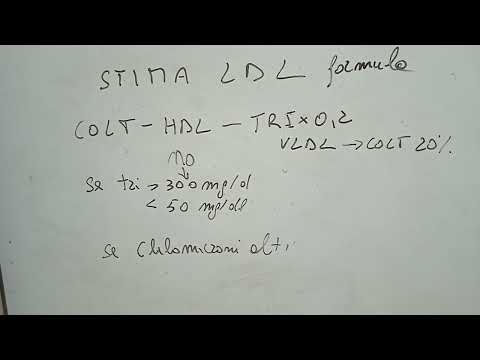 STIMA LDL formula
COLT - HDL - TRI x 0,2
VLDL → COLT 20%
NO
se tri > 300 mg/dl
< 50 mg/dl
se chilomicroni alti